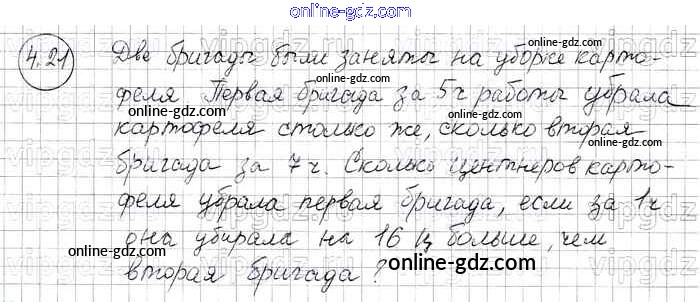 online-gdz.com
4.21 Две бригады были заняты на уборке карто-
online-gdz.com
online-gdz.com
феля Первая бригада за 5 ч работы убрала
online-gdz.com
картофеля столько же, сколько вторая
бригада за 7 ч. Сколько центнеров карто-
online-gdz.com
феля убрала первая бригада, если за 1 ч
она убирала на 16 ц больше, чем
online-gdz.com
online-gdz.com
вторая бригада?